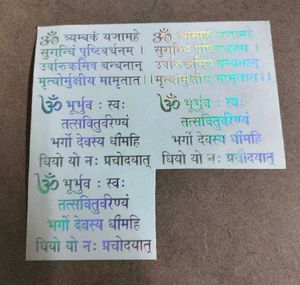 ॐ त्र्यम्बकं यजामहे
सुगन्धिं पुष्टिवर्धनम् ।
उर्वारुकमिव बन्धनान्
मृत्योर्मुक्षीय मामृतात् ।।
ॐ त्र्यम्बकं यजामहे
सुगन्धिं पुष्टिवर्धनम् ।
उर्वारुकमिव बन्धनान्
मृत्योर्मुक्षीय मामृतात ।।
ॐ भूर्भुवः स्वः
तत्सवितुर्वरेण्यं
भर्गो देवस्य धीमहि
धियो यो नः प्रचोदयात्
ॐ भूर्भुवः स्वः
तत्सवितुर्वरेण्यं
भर्गो देवस्य धीमहि
धियो यो नः प्रचोदयात्
ॐ भूर्भुवः स्वः
तत्सवितुर्वरेण्यं
भर्गो देवस्य धीमहि
धियो यो नः प्रचोदयात्